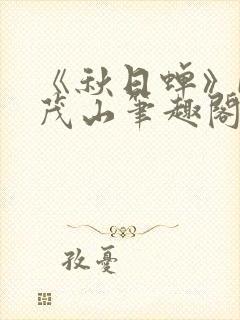 《秋日蝉》
茂山笔趣阁
孜忧